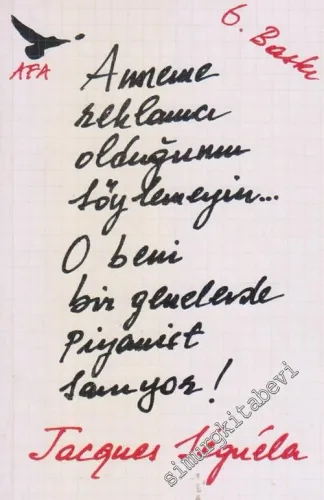 AFA
6. Baskı
Anneme
reklamcı
olduğumu
söylemeyin...
O beni
bir genelevde
Piyanist
sanıyor!
Jacques Séguéla
simurgkitabevi